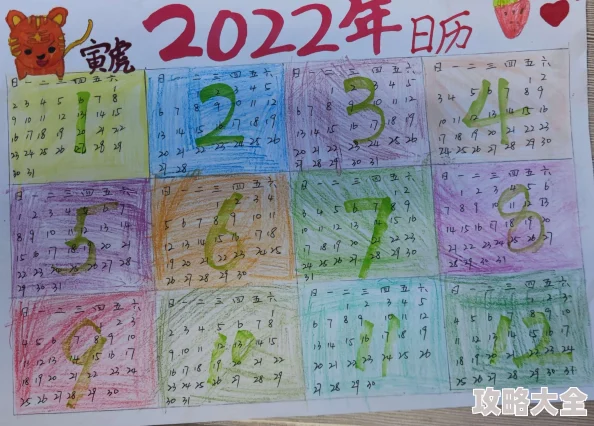 2022年日历
寅虎
日 一 二 三 四 五 六
1
1
2 3 4 5 6 7 8
9 10 11 12 13 14 15
16 17 18 19 20 21 22
23 24 25 26 27 28 29
30 31
日 一 二 三 四 五 六
2
1 2 3 4 5
6 7 8 9 10 11 12
13 14 15 16 17 18 19
20 21 22 23 24 25 26
27 28
日 一 二 三 四 五 六
3
日 一 二 三 四 五 六
4
1 2
3 4 5 6 7 8 9
10 11 12 13 14 15 16
17 18 19 20 21 22 23
24 25 26 27 28 29 30
日 一 二 三 四 五 六
5
1 2 3 4 5 6 7
8 9 10 11 12 13 14
15 16 17 18 19 20 21
22 23 24 25 26 27 28
29 30 31
日 一 二 三 四 五 六
6
1 2 3 4
5 6 7 8 9 10 11
12 13 14 15 16 17 18
19 20 21 22 23 24 25
26 27 28 29 30
日 一 二 三 四 五 六
7
1 2
3 4 5 6 7 8 9
10 11 12 13 14 15 16
17 18 19 20 21 22 23
24 25 26 27 28 29 30
31
日 一 二 三 四 五 六
8
日 一 二 三 四 五 六
9
1 2 3
4 5 6 7 8 9 10
11 12 13 14 15 16 17
18 19 20 21 22 23 24
25 26 27 28 29 30
日 一 二 三 四 五 六
10
日 一 二 三 四 五 六
11
1 2 3 4 5
6 7 8 9 10 11 12
13 14 15 16 17 18 19
20 21 22 23 24 25 26
27 28 29 30
日 一 二 三 四 五 六
12
1 2 3
4 5 6 7 8 9 10
11 12 13 14 15 16 17
18 19 20 21 22 23 24
25 26 27 28 29 30 31
攻略大全